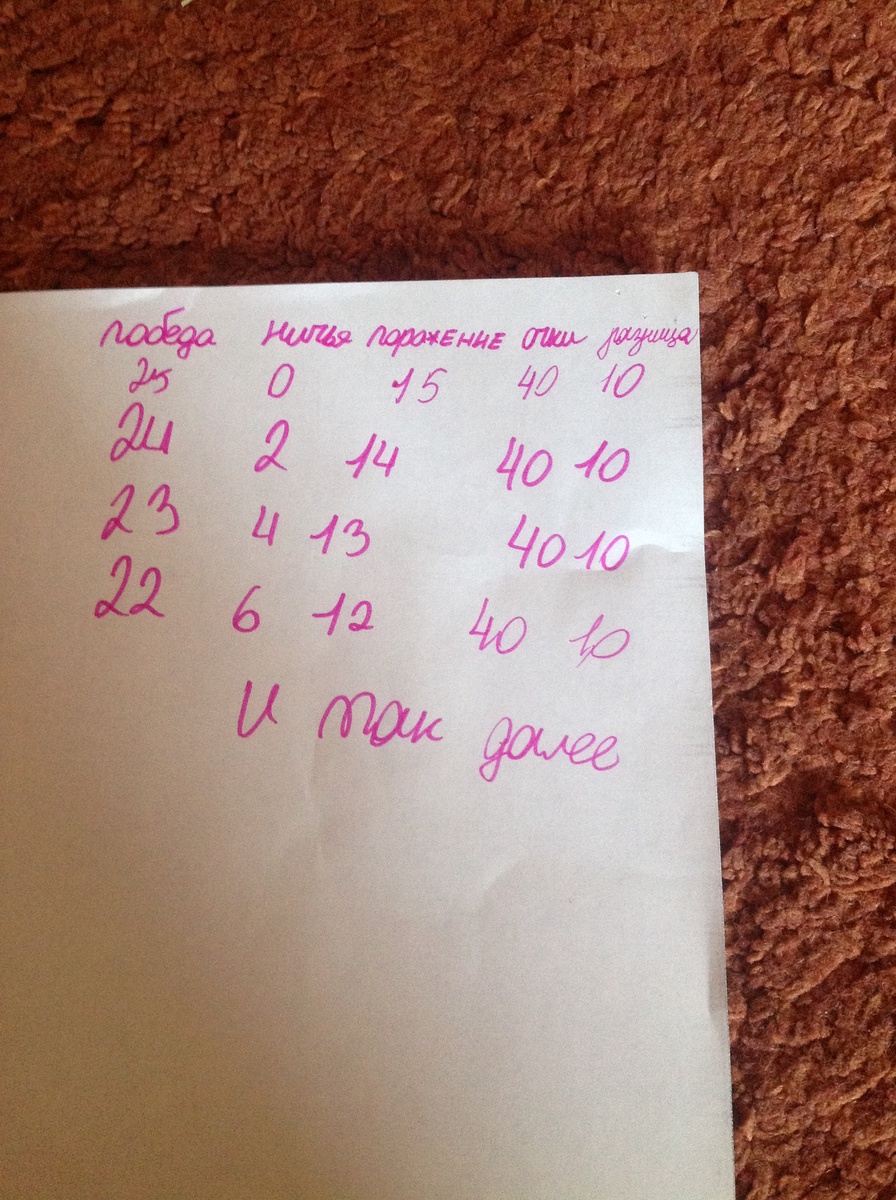 победа ничья поражение очки разница
25 0 15 40 10
24 2 14 40 10
23 4 13 40 10
22 6 12 40 10
И так далее